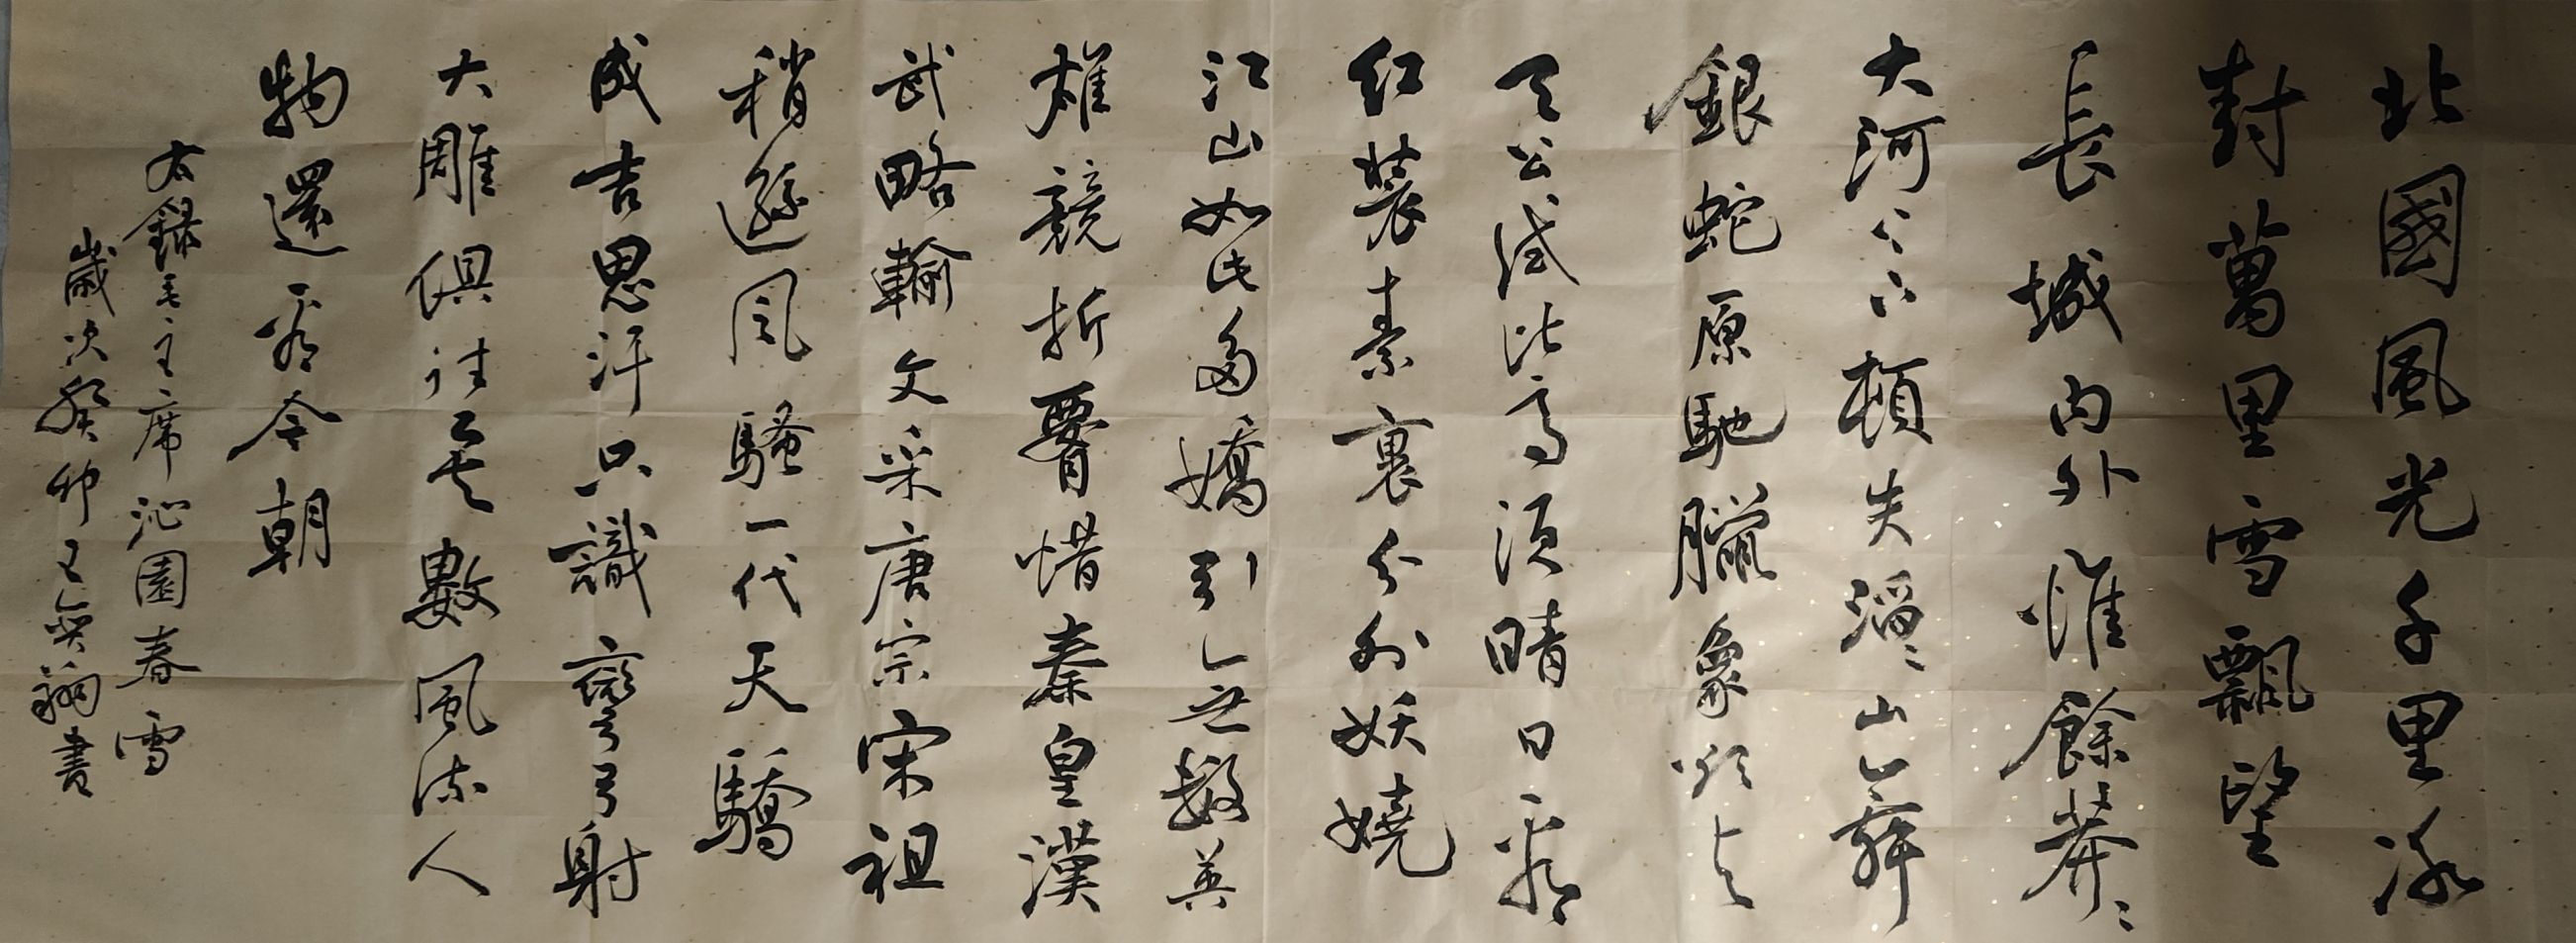 北國風光千里冰
封萬里雪飄望
長城內外惟餘莽〻
大河上下頓失滔〻山舞
銀蛇原馳臘象欲与
天公試比高須晴日看
红裝素裹分外妖嬈
江山如此多嬌引無數英
雄競折腰惜秦皇漢
武略輸文采唐宗宋祖
稍遜風騷一代天驕
成吉思汗只識彎弓射
大雕俱往矣數風流人
物還看今朝
右錄毛主席沁園春雪
歲次癸卯書